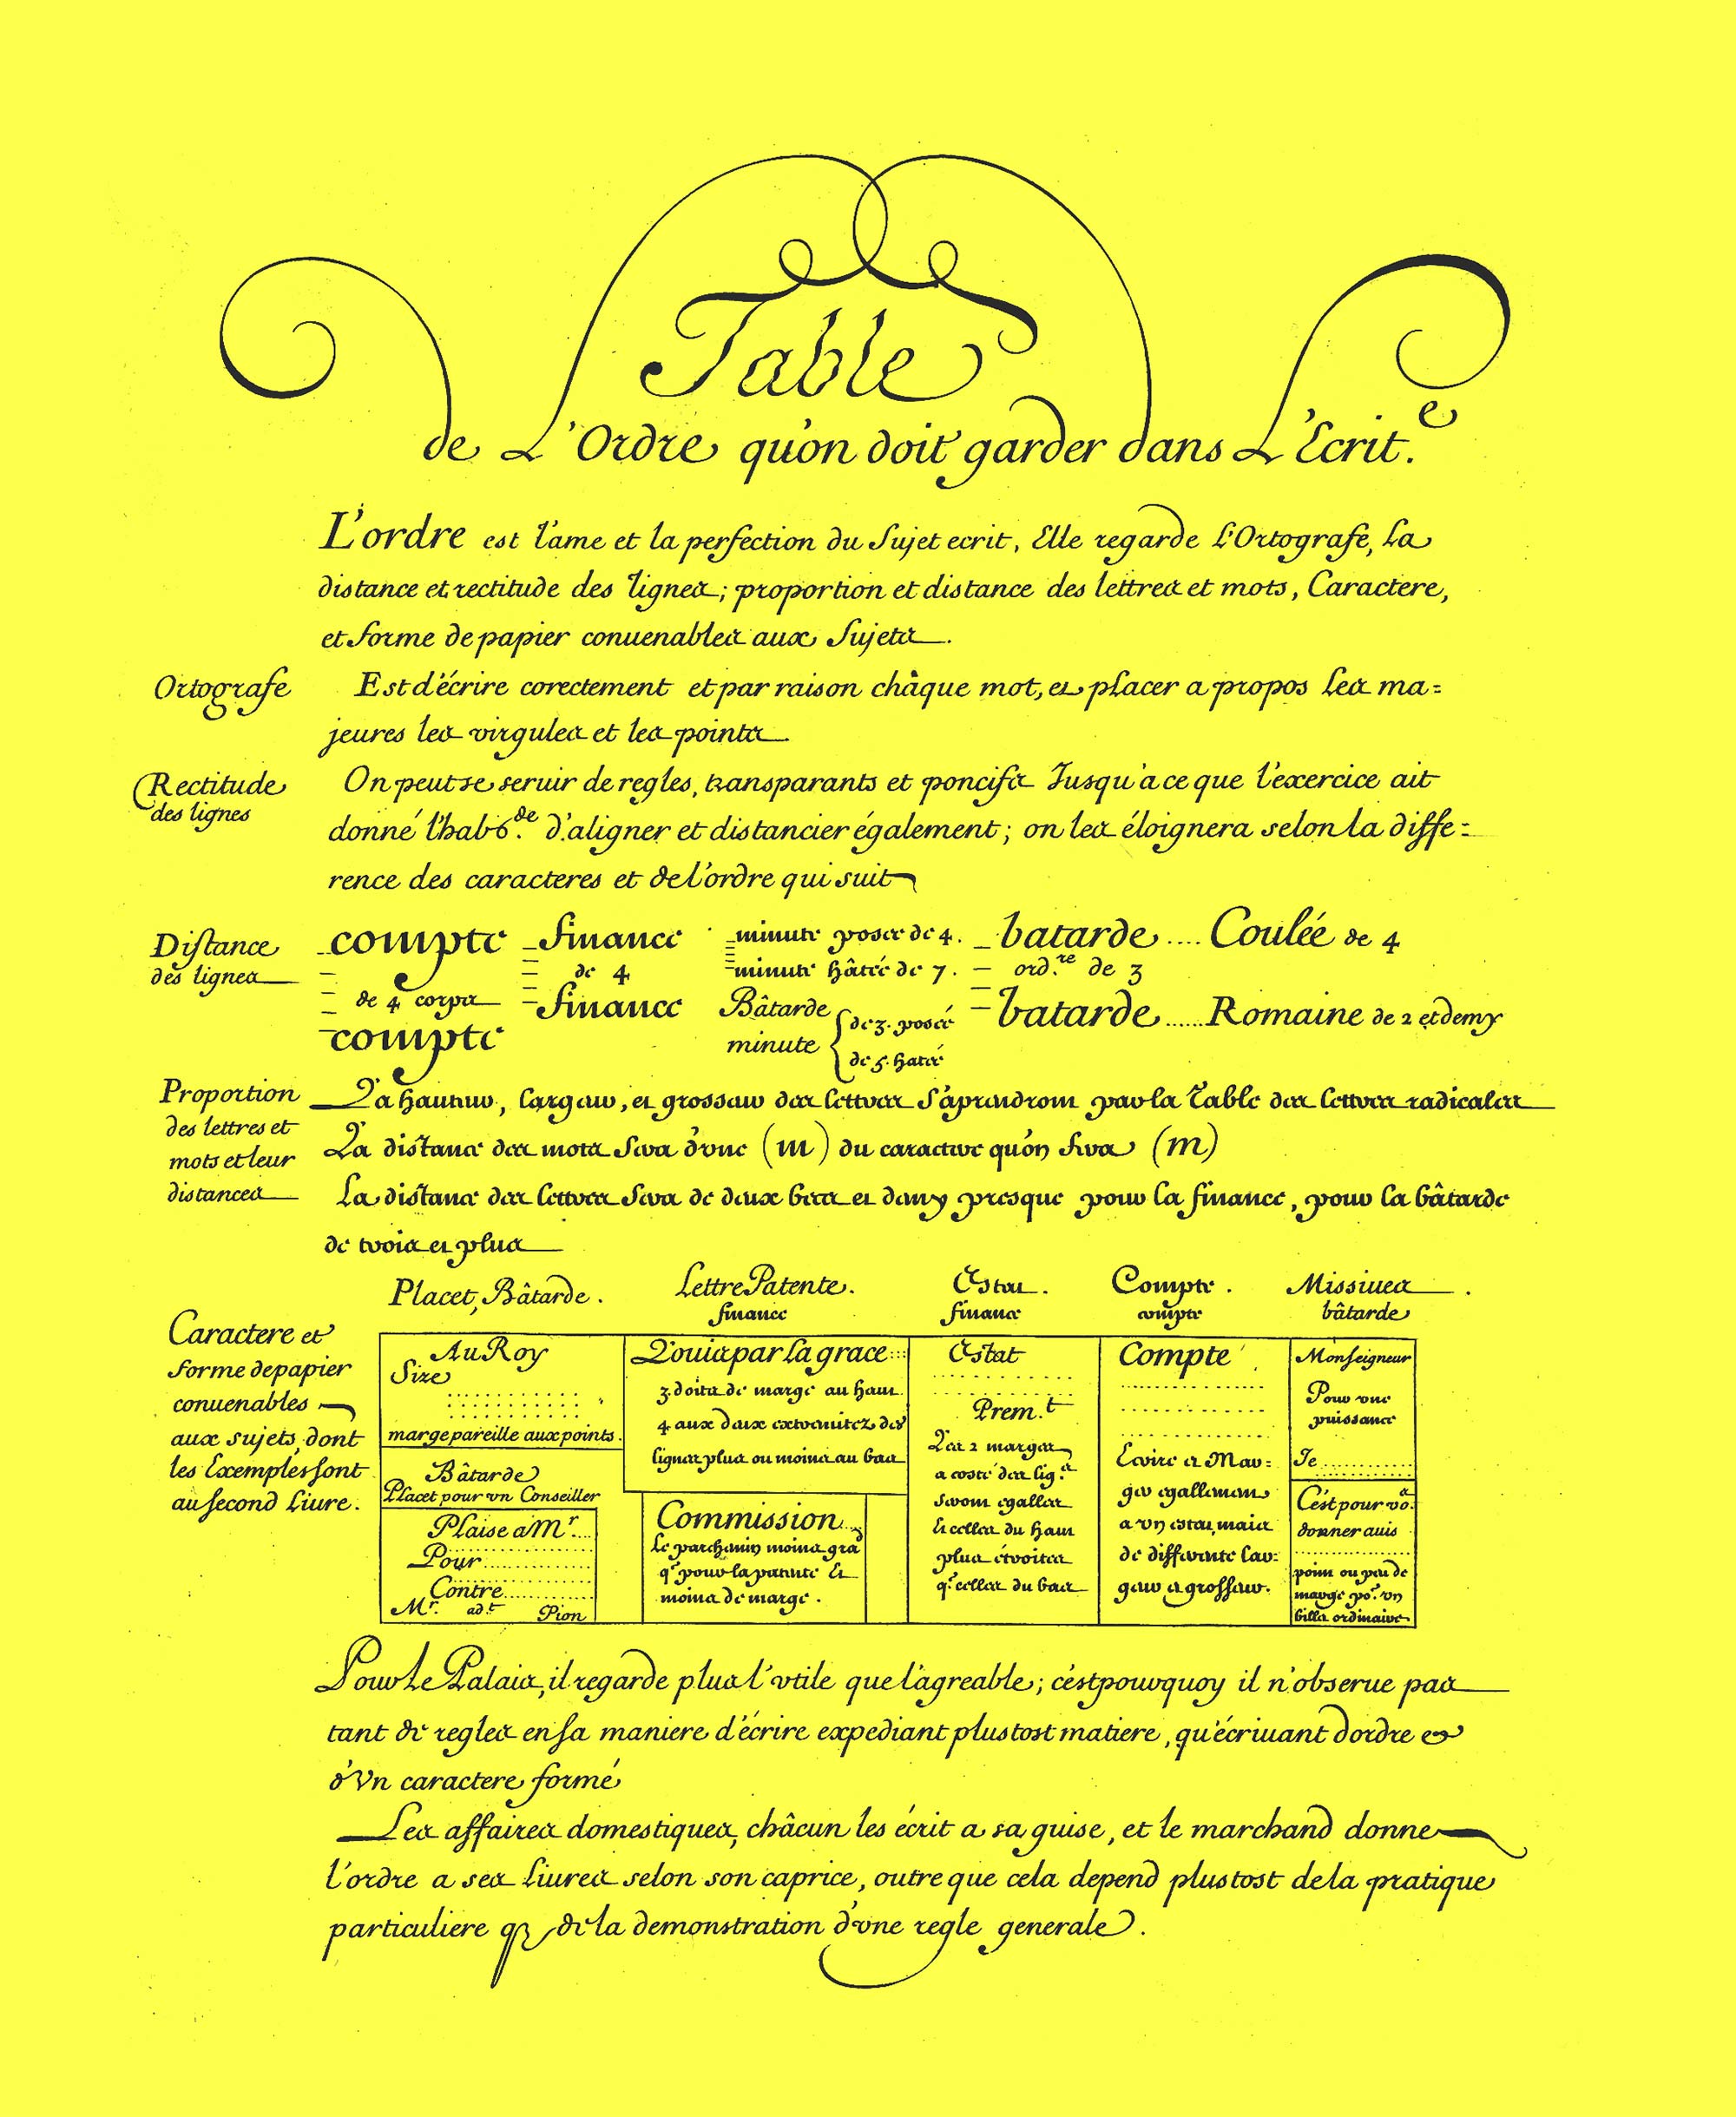 Table
de L'Ordre qu'on doit garder dans L'Ecrit.e
L'ordre est l'ame et la perfection du Sujet ecrit, Elle regarde L'Ortografe, La
distance et rectitude des lignes; proportion et distance des lettres et mots, Caractere,
et forme de papier conuenables aux Sujets.
Ortografe Est d'écrire corectement et par raison châque mot, et placer a propos Les ma=
jeures les virgules et les points
Rectitude On peut se seruir de regles, transparants et poncifs Jusqu'a ce que l'exercice ait
des lignes donné l'hab6.de d'aligner et distancier également; on les éloignera selon la diffe=
rence des caracteres et de l'ordre qui suit
Distance compte finance minute posee de 4. batarde .... Coulée de 4
des lignes de 4 minute hâtée de 7. ord.re de 3
de 4 corps finance Bâtarde de 3. posée batarde ..... Romaine de 2 et demy
compte minute de 5. hatée
Proportion La hauteur, largeur, et grosseur des lettres S'aprendront par la Table des lettres radicales
des lettres et La distance des mots Sera d'une (m) du caractere qu'on fera (m)
mots et leur
distances La distance des lettres Sera de deux becs et demy presque pour la finance, pour la bâtarde
de trois et plus
Placet, Bâtarde. Lettre Patente. Estat. Compte. Missiues.
finance finance compte bâtarde
Caractere et
forme de papier
conuenables
aux sujets, dont
les Exemples sont
au second Liure.
Au Roy
Sire
marge pareille aux points.
Bâtarde
Placet pour vn Conseiller
Plaise a Mr....
Pour
Contre
Mr. ad.t Pion
Louis par La grace
3 doits de marge au haut
4 aux deux extremitez des
lignes plus ou moins au bas
Commission
Le parchemin moins grãd
q.e pour la patente &
moins de marge.
Estat
Prem.t
Les 2 marges
a costé des lig.s
seront egalles
& celles du haut
plus étroites
q.e celles du bas
Compte
Ecrire et Mar=
ger egallement
a vn estat, mais
de differente lar=
geur et grosseur.
Monseigneur
Pour vne
puissance
Je
C'est pour vo.s
donner auis
point ou peu de
marge po.r vn
billet ordinaire
Pour Le Palais, il regarde plus l'vtile que l'agreable; c'est pourquoy il n'obserue pas
tant de regles en sa maniere d'écrire expediant plustost matiere, qu'écriuant d'ordre et
d'Vn caractere formé
Les affaires domestiques, châcun les écrit a sa guise, et le marchand donne
l'ordre a ses Liures selon son caprice, outre que cela depend plustost de la pratique
particuliere q. de la demonstration d'vne regle generale.